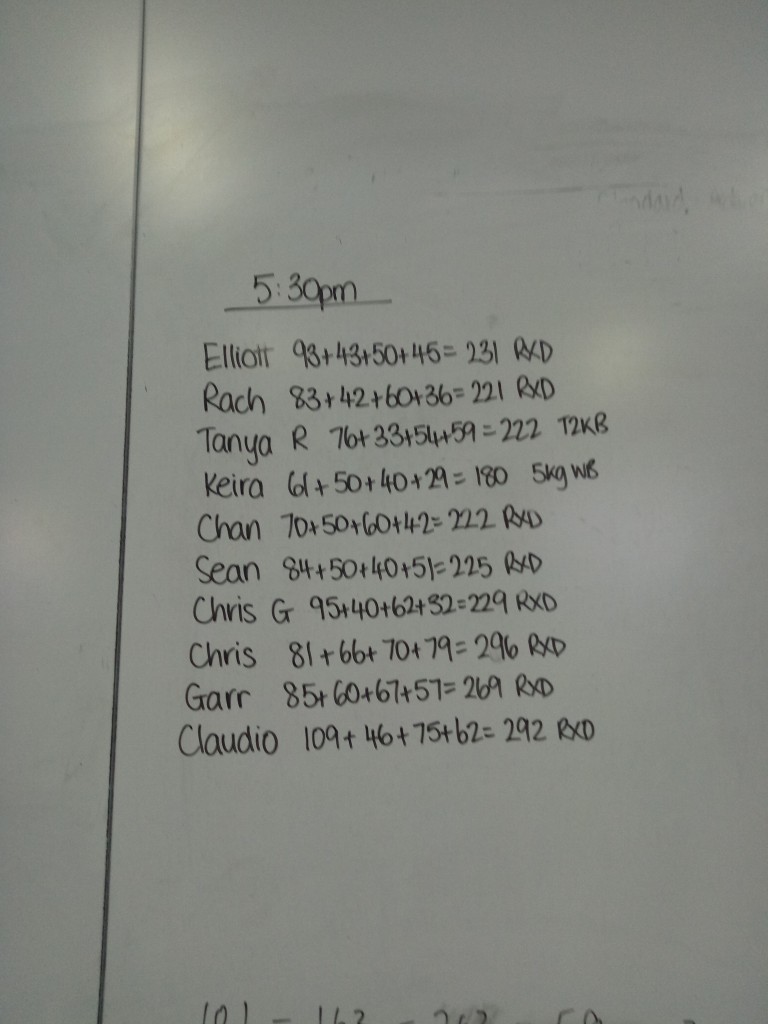 5:30pm
Elliott 93+43+50+45= 231 RXD
Rach 83+42+60+36=221 RXD
Tanya R 76+33+54+59=222 T2KB
Keira 61+50+40+29= 180 5kg WB
Chan 70+50+60+42=222 RXD
Sean 84+50+40+51=225 RXD
Chris G 95+40+62+32=229 RXD
Chris 81+66+70+79= 296 RXD
Garr 85+60+67+57= 269 RXD
Claudio 109+46+75+62= 292 RXD